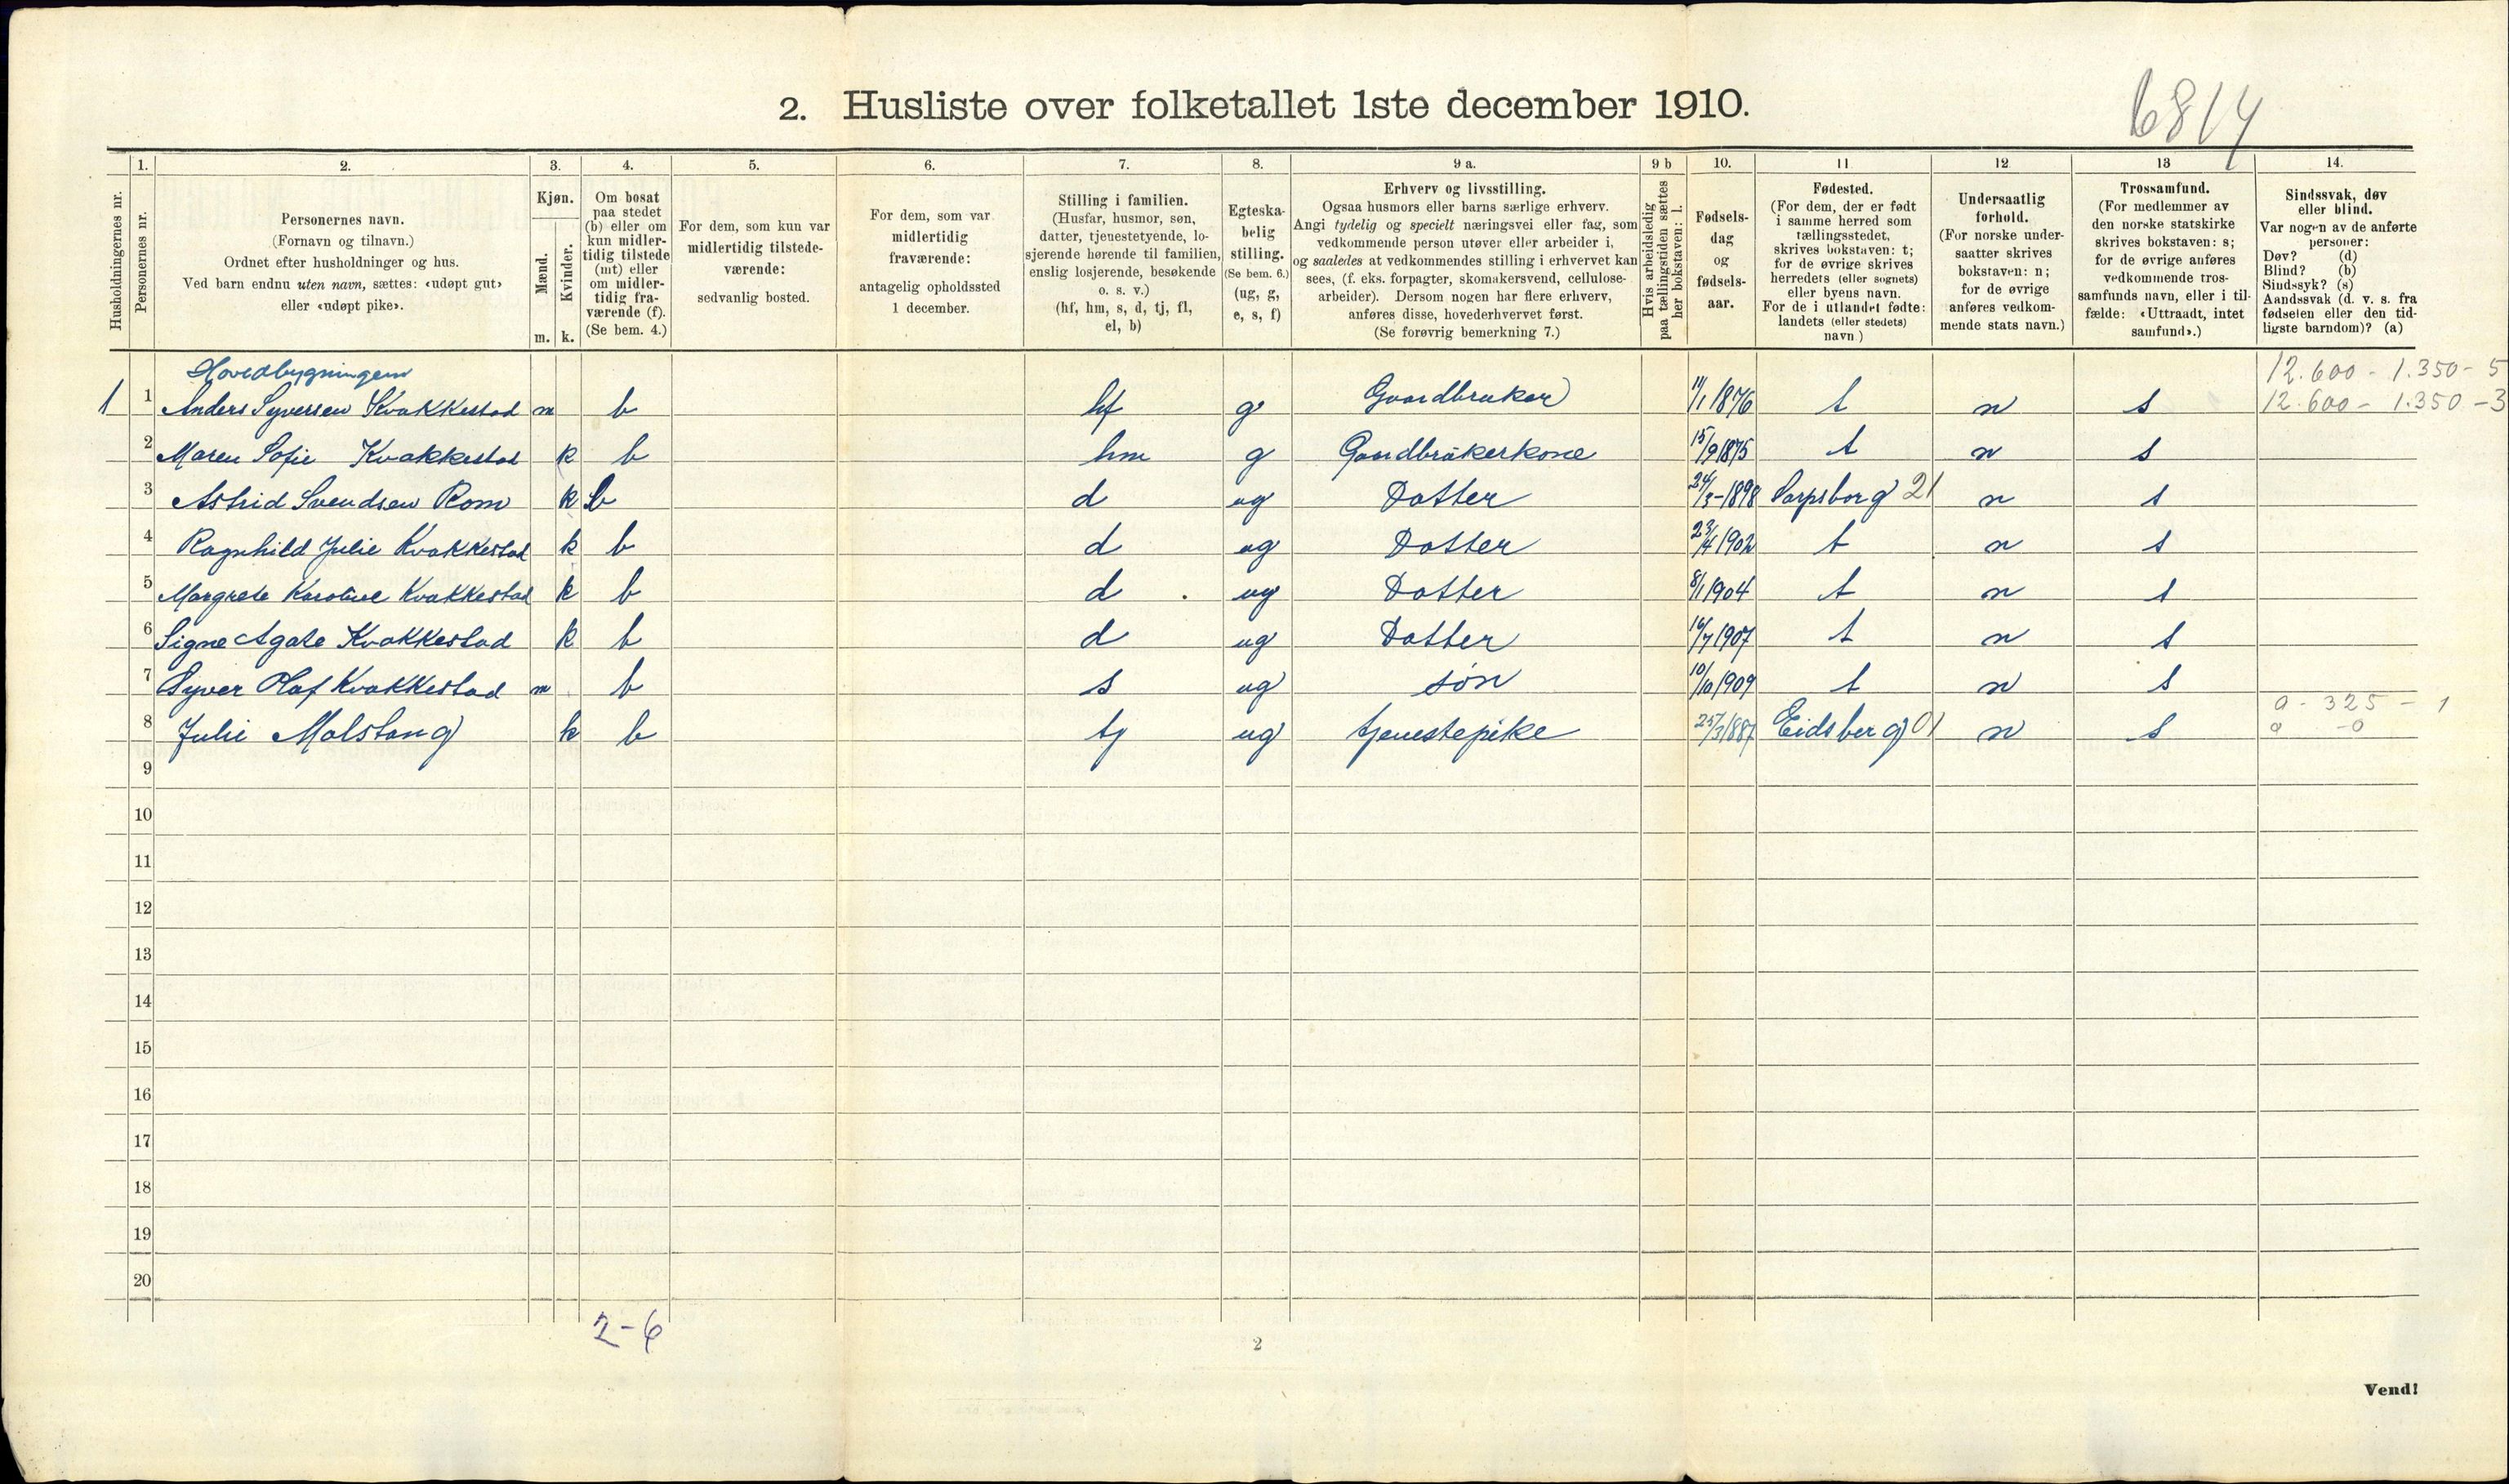 6814
2. Husliste over folketallet 1ste december 1910.
Husholdningernes nr.
1.
Personernes nr.
2.
Personernes navn.
(Fornavn og tilnavn.)
Ordnet efter husholdninger og hus.
Ved barn endnu uten navn, sættes: «udøpt gut»
eller «udøpt pike».
3.
Kjøn.
Mænd.
Kvinder.
m. k.
4.
Om bosat
paa stedet
(b) eller om
kun midler-
tidig tilstede
(mt) eller
om midler-
tidig fra-
værende (f).
(Se bem. 4.)
5.
For dem, som kun var
midlertidig tilstede-
værende:
sedvanlig bosted.
6.
For dem, som var
midlertidig
fraværende:
antagelig opholdssted
1 december.
7.
Stilling i familien.
(Husfar, husmor, søn,
datter, tjenestetyende, lo-
sjerende hørende til familien,
enslig losjerende, besøkende
o. s. v.)
(hf, hm, s, d, tj, fl,
el, b)
8.
Egteska-
belig
stilling.
(Se bem. 6.)
(ug, g,
e, s, f)
9 a.
Erhverv og livsstilling.
Ogsaa husmors eller barns særlige erhverv.
Angi tydelig og specielt næringsvei eller fag, som
vedkommende person utøver eller arbeider i,
og saaledes at vedkommendes stilling i erhvervet kan
sees, (f. eks. forpagter, skomakersvend, cellulose-
arbeider). Dersom nogen har flere erhverv,
anføres disse, hovederhvervet først.
(Se forøvrig bemerkning 7.)
9 b
Hvis arbeidsledig
paa tællingstiden sættes
her bokstaven: l.
10.
Fødsels-
dag
og
fødsels-
aar.
11
Fødested.
(For dem, der er født
i samme herred som
tællingsstedet,
skrives bokstaven: t;
for de øvrige skrives
herredets (eller sognets)
eller byens navn.
For de i utlandet fødte:
landets (eller stedets)
navn.)
12
Undersaatlig
forhold.
(For norske under-
saatter skrives
bokstaven: n;
for de øvrige
anføres vedkom-
mende stats navn.)
13
Trossamfund.
(For medlemmer av
den norske statskirke
skrives bokstaven: s;
for de øvrige anføres
vedkommende tros-
samfunds navn, eller i til-
fælde: «Uttraadt, intet
samfund».)
14.
Sindssvak, døv
eller blind.
Var nogen av de anførte
personer:
Døv? (d)
Blind? (b)
Sindssyk? (s)
Aandssvak (d. v. s. fra
fødselen eller den tid-
ligste barndom)? (a)
Hovedbygningen 12.600 - 1.350 - 5
1 1 Anders Syversen Kvakkestad m b hf g Gaardbruker 11/1 1876 t n s 12.600 - 1.350 - 3
2 Maren Sofie Kvakkestad k b hm g Gaardbrukerkone 15/9 1875 t n s
3 Astrid Svendsen Rom k b d ug Datter 24/3-1898 Sarpsborg 21 n s
4 Ragnhild Julie Kvakkestad k b d ug Datter 23/4 1902 t n s
5 Margrete Karoline Kvakkestad k b d ug Datter 8/1 1904 t n s
6 Signe Agate Kvakkestad k b d ug Datter 16/7 1907 t n s
7 Syver Olaf Kvakkestad m b s ug søn 10/10 1909 t n s
0 - 325 - 1
8 Julie Malstang k b tj ug tjenestepike 25/3 1887 Eidsberg 01 n s 0 - 0
9
10
11
12
13
14
15
16
17
18
19
20
2-6
2
Vend!